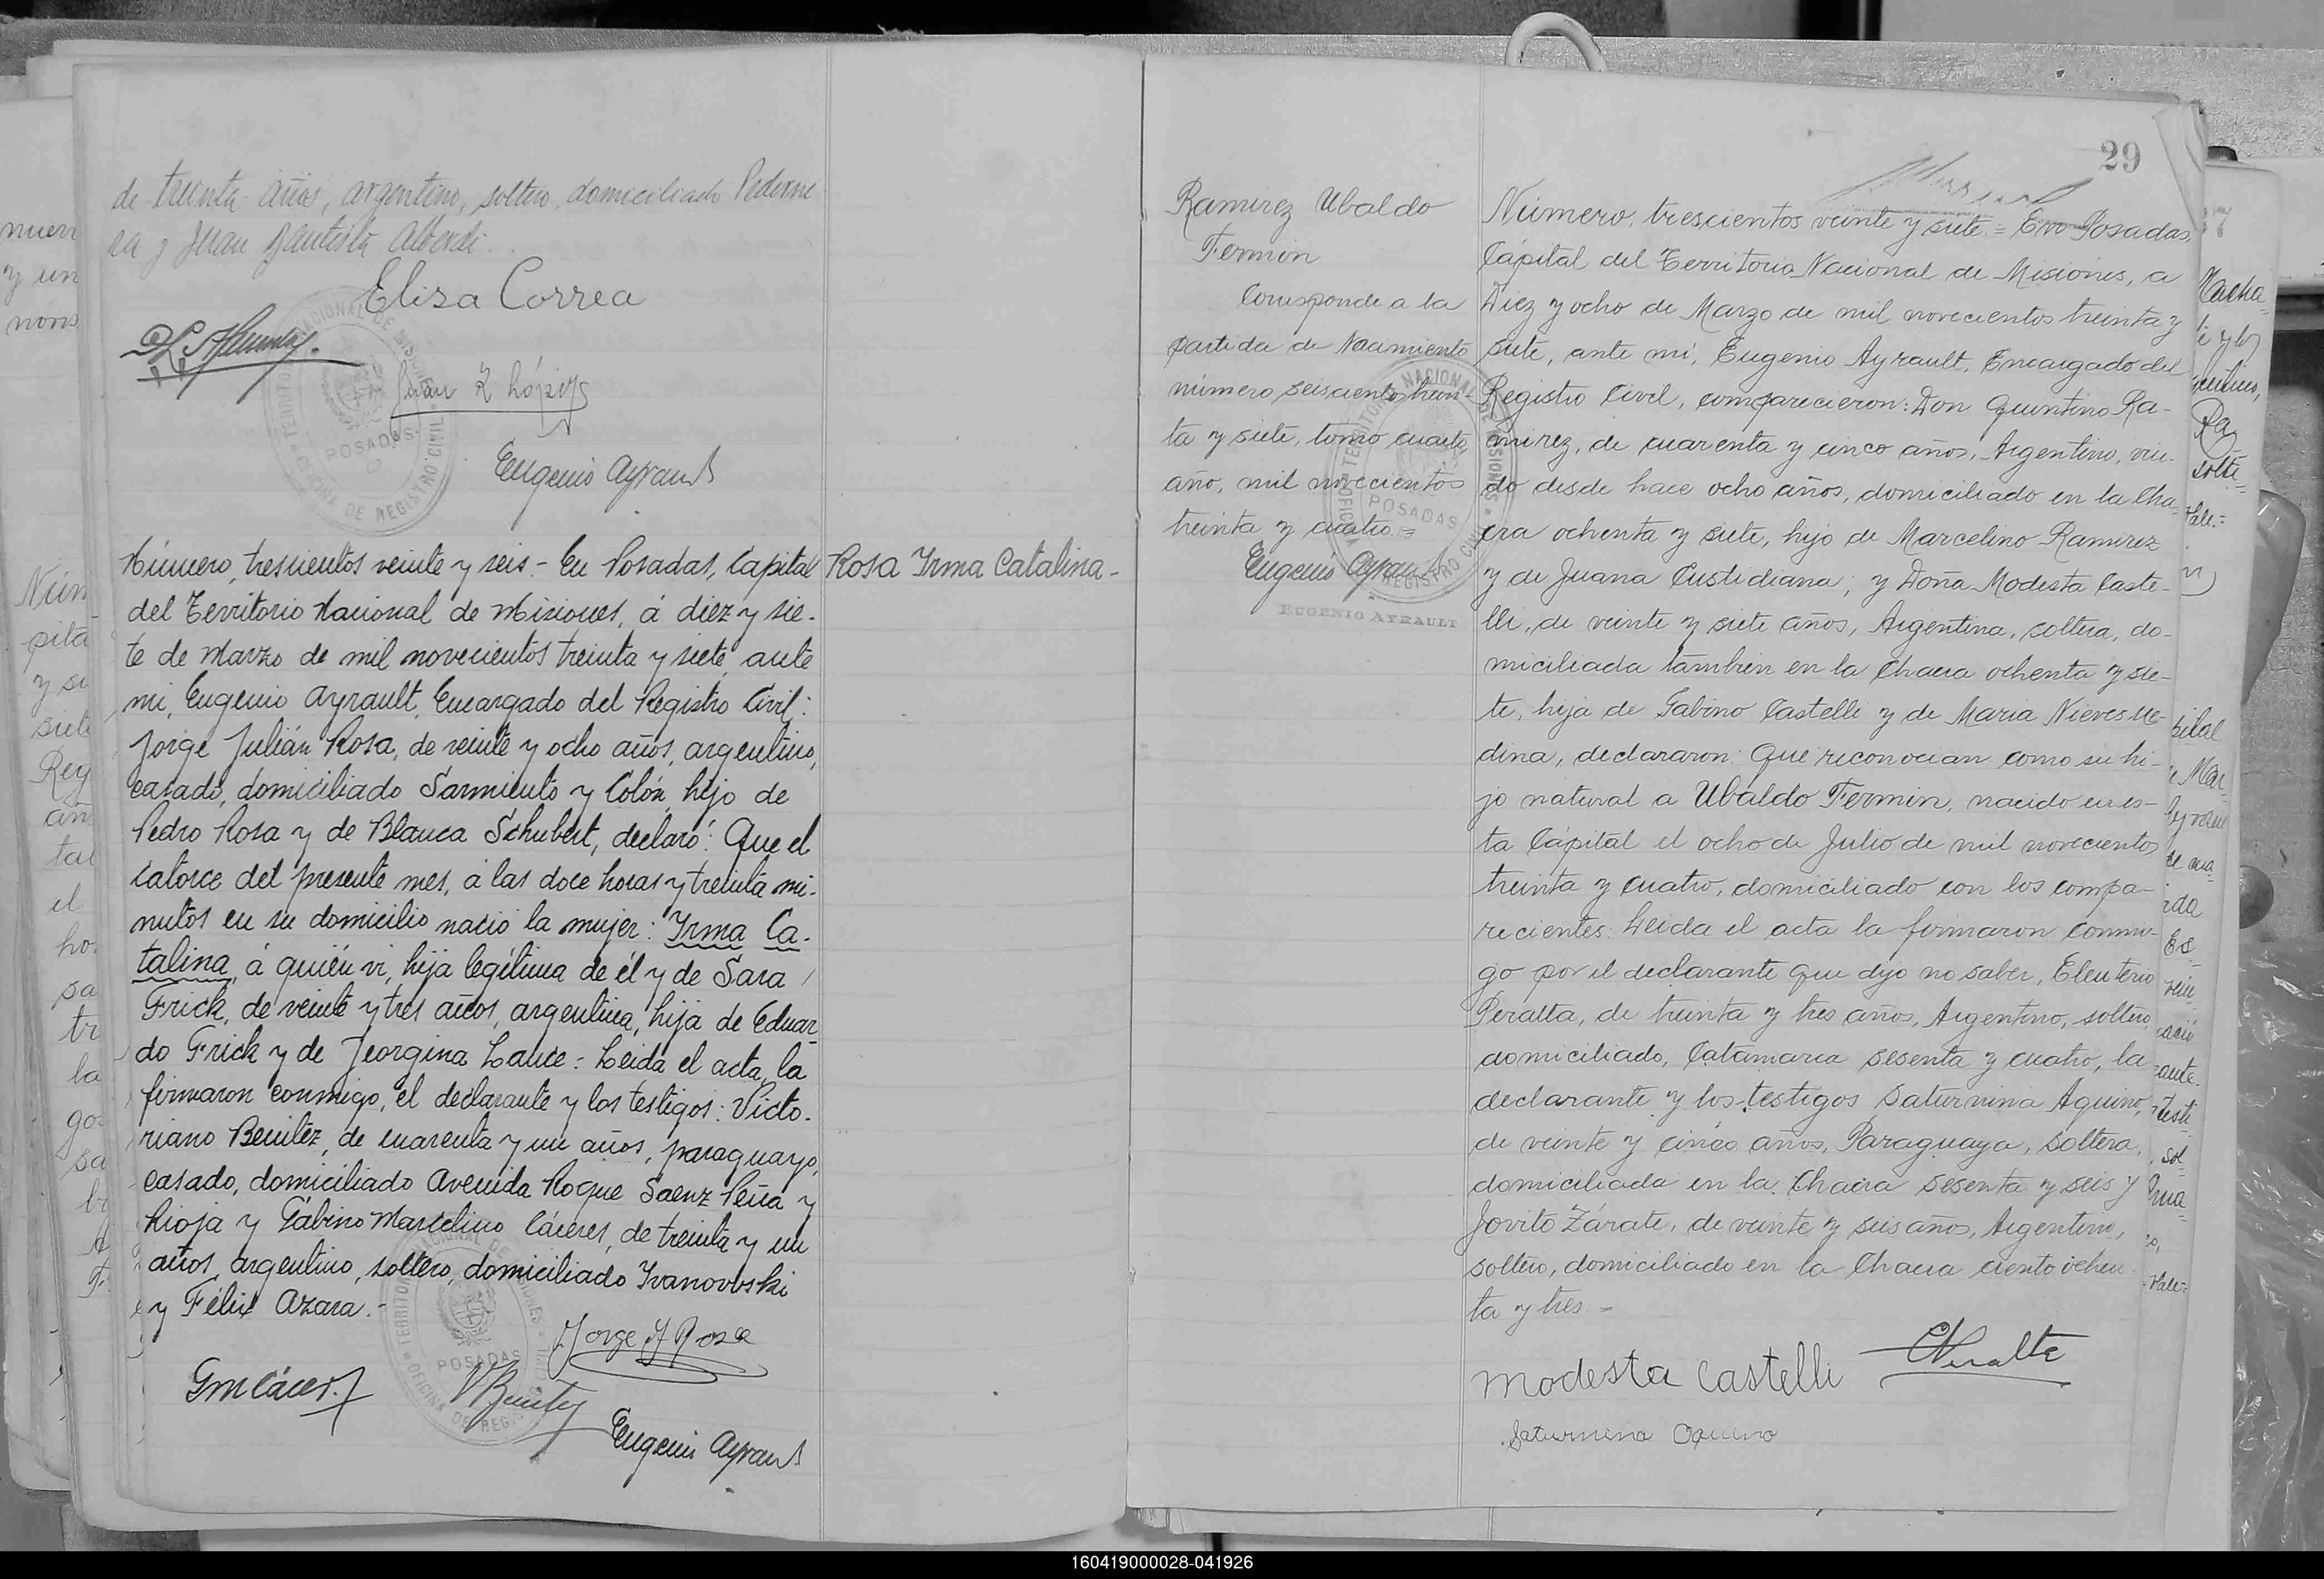 de treinta años, argentino, soltero, domiciliado Pederne
ra y Juan Bautista Alberdi.
Elisa Correa
Juan R López
Eugenio Ayrault
TERRITORIO NACIONAL DE MISIONES
OFICINA DE REGISTRO CIVIL
POSADAS
Número, trescientos veinte y seis.- En Posadas, Capital
del Territorio Nacional de Misiones, á diez y sie-
te de Marzo de mil novecientos treinta y siete, ante
mi, Eugenio Ayrault, Encargado del Registro Civil:
Jorge Julián Rosa, de veinte y ocho años, argentino,
casado, domiciliado Sarmiento y Colón, hijo de
Pedro Rosa y de Blanca Schubert, declaró: Que el
catorce del presente mes, á las doce horas y treinta mi-
nutos en su domicilio nació la mujer: Irma Ca-
talina, á quién vi, hija legítima de él y de Sara
Frick, de veinte y tres años, argentina, hija de Eduar
do Frick y de Jeorgina Lante: Leida el acta, la
firmaron conmigo, el declarante y los testigos: Victo-
riano Benitez, de cuarenta y un años, paraguayo,
casado, domiciliado Avenida Roque Saenz Peña y
Rioja y Gabino Marcelino Cáceres, de treinta y un
años, argentino, soltero, domiciliado Ivanovvski
y Félix Azara.-
Jorge J Rosa
GmCácer
VBenitez
Eugenio Ayrault
Rosa Irma Catalina-
29
Ramirez Ubaldo
Fermin
Corresponde a la
partida de Nacimiento
número seisciento trein-
ta y siete, tomo cuarto
año, mil novecientos
treinta y cuatro =
Eugenio Ayrault
EUGENIO AYRAULT
TERRITORIO NACIONAL DE MISIONES
OFICINA DE REGISTRO CIVIL
POSADAS
Número, trescientos veinte y siete.= En Posadas,
Cápital del Territorio Nacional de Misiones, a
Diez y ocho de Marzo de mil novecientos treinta y
siete, ante mi, Eugenio Ayrault, Encargado del
Registro Civil, comparecieron: Don Quintino Ra-
amirez, de cuarenta y cinco años, Argentino, viu-
do desde hace ocho años, domiciliado en la Cha-
cra ochenta y siete, hijo de Marcelino Ramirez
y de Juana Custidiana; y Doña Modesta Caste-
lli, de veinte y siete años, Argentina, soltera, do-
miciliada tambien en la Chacra ochenta y sie-
te, hija de Gabino Castelli y de Maria Nieves Me-
dina, declararon: Que reconocian como su hi-
jo natural a Ubaldo Fermin, nacido en es-
ta Cápital el ocho de Julio de mil novecientos
treinta y cuatro, domiciliado con los compa-
recientes: Leida el acta la firmaron conmi-
go por el declarante que dijo no saber, Eleuterio
Peralta, de treinta y tres años, Argentino, soltero,
domiciliado, Catamarca sesenta y cuatro, la
declarante y los testigos Saturnina Aquino,
de veinte y cinco años, Paraguaya, soltera,
domiciliada en la Chacra sesenta y seis y
Jovito Zárate, de veinte y seis años, Argentino,
soltero, domiciliado en la Chacra ciento ochen
ta y tres.=
Modesta Castelli
EPeralta
Saturnina Aquino
160419000028-041926